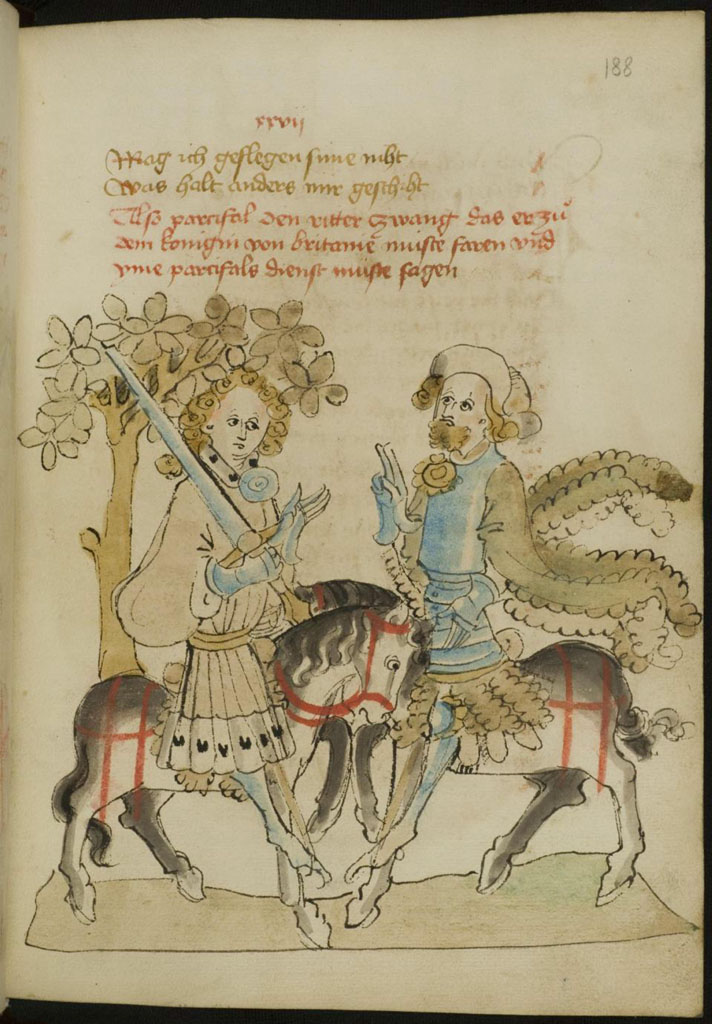 188
xxvij
Mag ich geslegen sime niht
Was halt anders mir geschiht
Also parcifal den ritter czwang das er zu̍
dem konigin von britanie muiste faren vnd
yme parcifals dienst muiste sagen